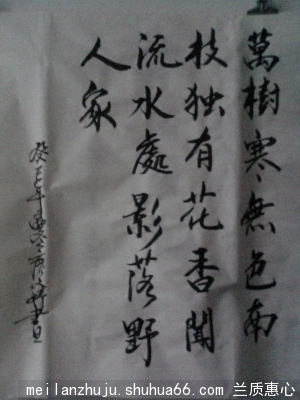 萬樹寒無色南
枝独有花香聞
流水處影落野
人家
癸巳年
書
meilanzhuju.shuhua66.com 兰质惠心